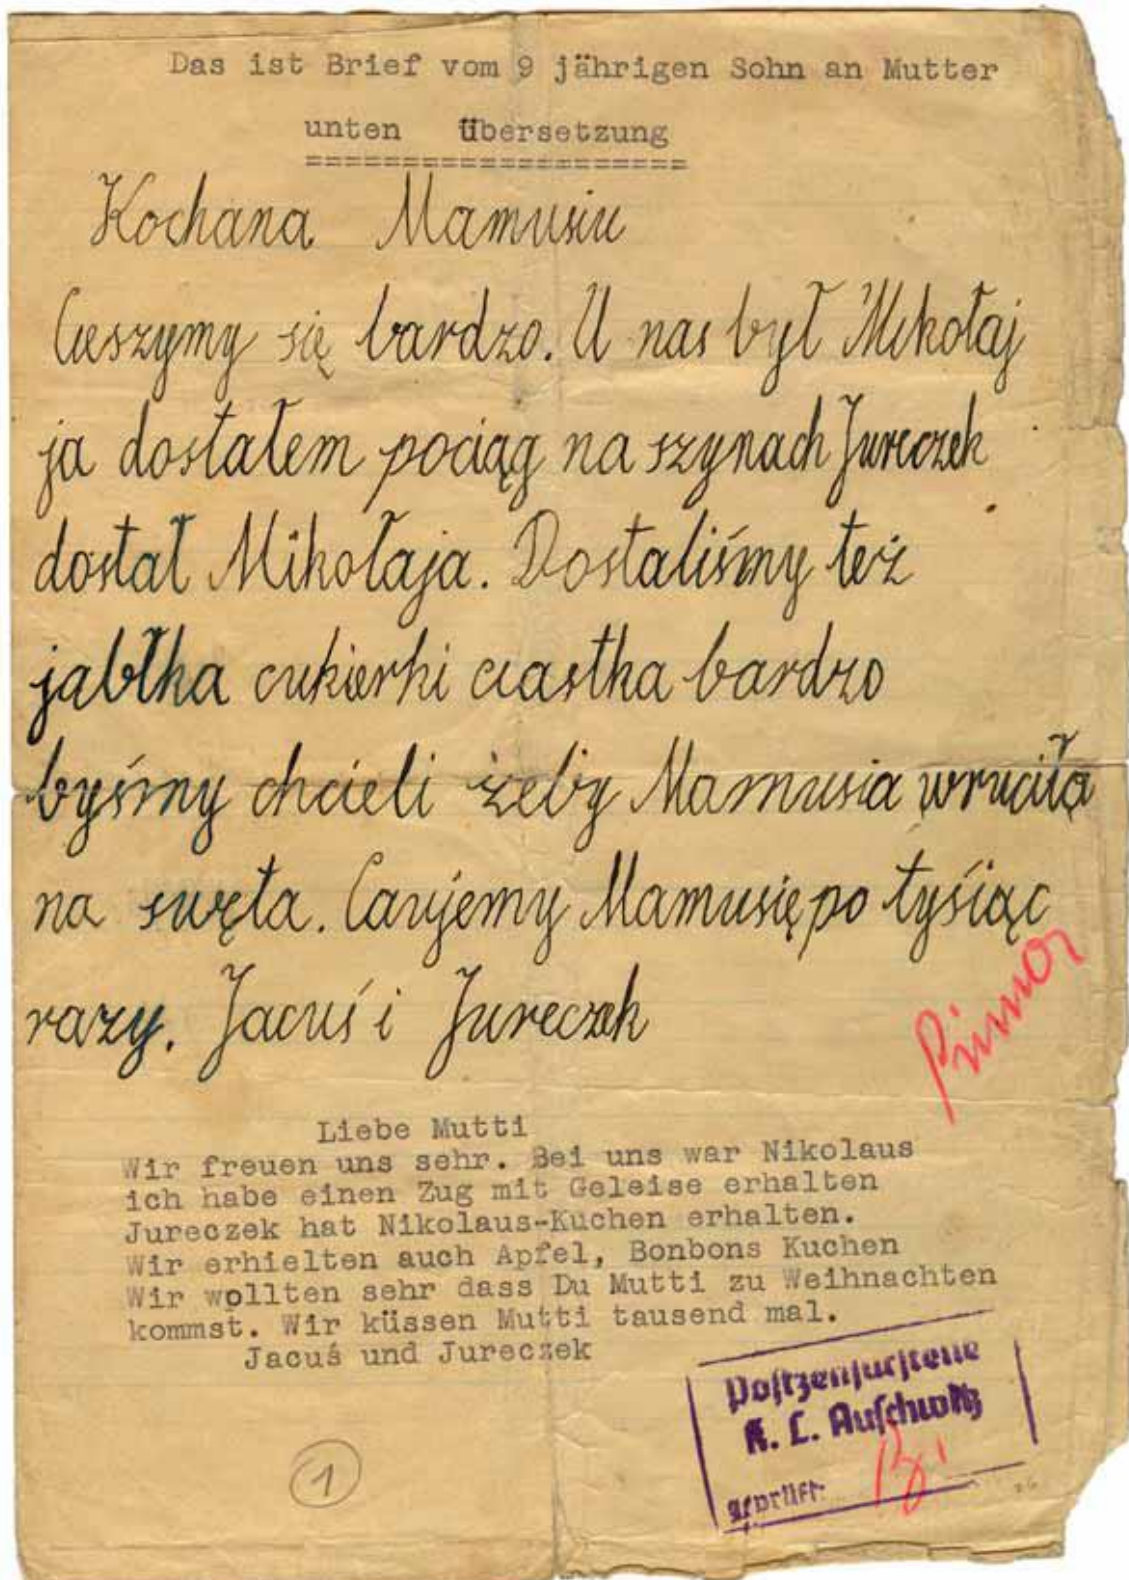 Das ist Brief vom 9 jährigen Sohn an Mutter
unten Übersetzung
=====================
Kochana Mamusiu
Cieszymy się bardzo. U nas był Mikołaj
ja dostałem pociąg na szynach Jureczek
dostał Mikołaja. Dostaliśmy też
jabłka cukierki ciastka bardzo
byśmy chcieli żeby Mamusia wruciła
na swęta. Caujemy Mamusię po tysiąc
razy. Jacuś i Jureczek
Liebe Mutti
Wir freuen uns sehr. Bei uns war Nikolaus
ich habe einen Zug mit Geleise erhalten
Jureczek hat Nikolaus-Kuchen erhalten.
Wir erhielten auch Apfel, Bonbons Kuchen
Wir wollten sehr dass Du Mutti zu Weihnachten
kommst. Wir küssen Mutti tausend mal.
Jacuś und Jureczek
Postzensurstelle
K. L. Auschwitz
geprüft:
1